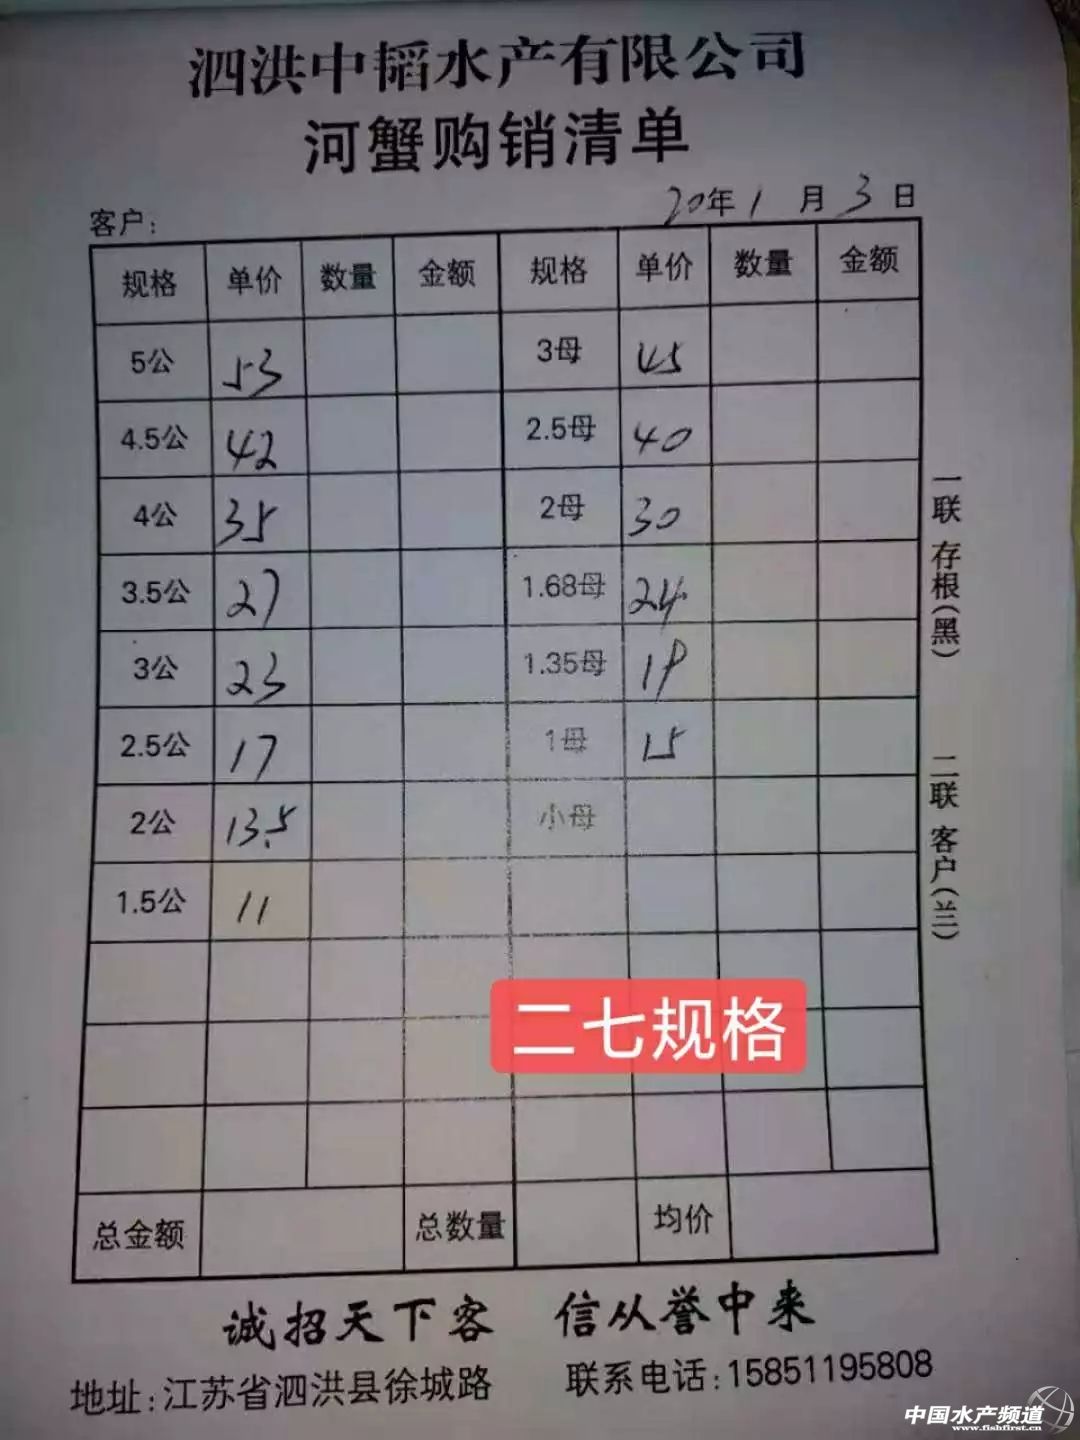 泗洪中韬水产有限公司
河蟹购销清单
客户: 20年1月3日
规格 单价 数量 金额 规格 单价 数量 金额
5公 53 3母 45
4.5公 42 2.5母 40
4公 35 2母 30
3.5公 27 1.68母 24
3公 23 1.35母 19
2.5公 17 1母 15
2公 13.5 小母
1.5公 11
一联 存根(黑) 二联 客户(兰)
二七规格
总金额 总数量 均价
诚招天下客 信从誉中来
地址:江苏省泗洪县徐城路 联系电话:15851195808
中国水产频道
www.fishfirst.cn